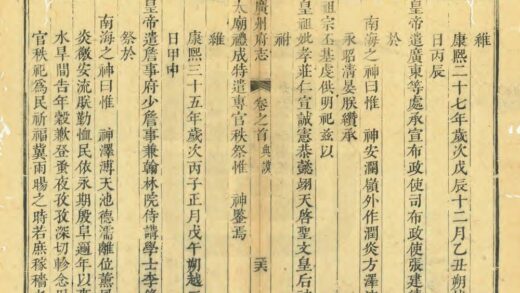 維
康熙二十七年歲次戊辰十二月乙丑朔
日丙辰
皇帝遣廣東等處承宣布政使司布政使張建
於
南海之神曰惟 神安瀾嶺外作潤炎方澤
永昭清晏朕纘承
祖宗丕基虔供明祀茲以
皇祖妣孝莊仁宣誠憲恭懿翊天啓聖文皇后
祔
廣州府志 卷之首 典謨
太廟禮成特遣專官秩祭惟 神鑒焉
維
康熙三十五年歲次丙子正月戊午朔越
日甲申
皇帝遣詹事府少詹事兼翰林院侍講學士李
祭於
南海之神曰惟 神澤溥天池德濡離位薰
炎徼安流朕勤恤民依永期殷阜邇年以
水旱間告年穀歉登蚤夜孜孜深切軫念
官秩祀爲民祈福冀雨暘之時若庶稼穡